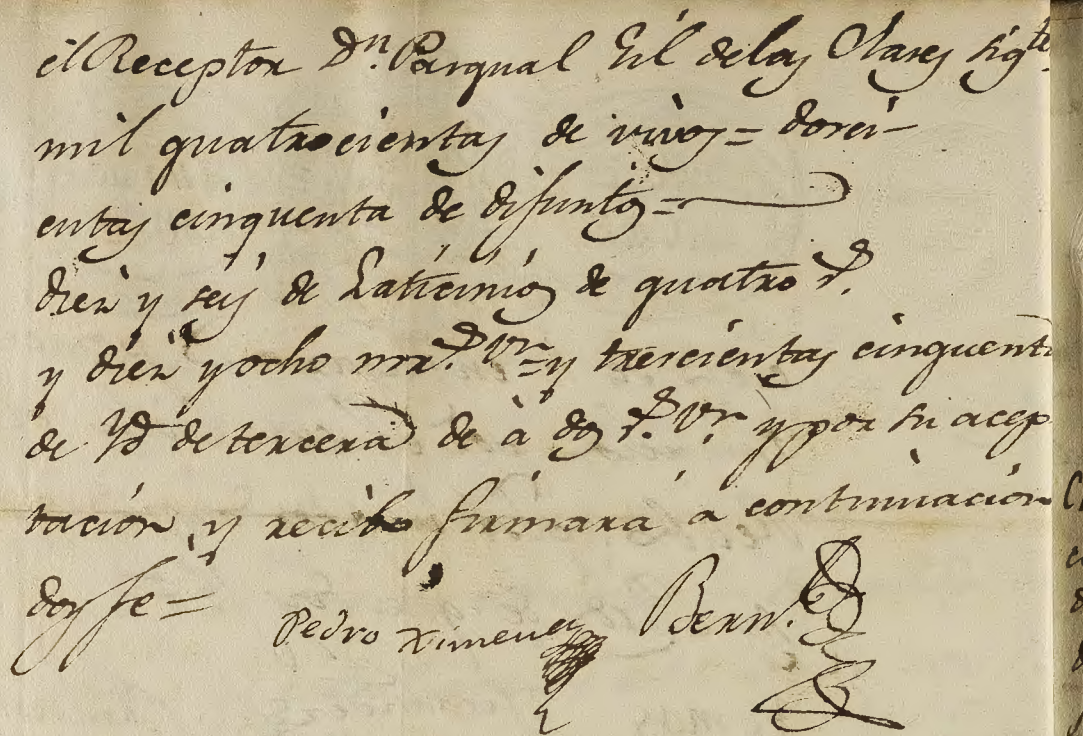 el Receptor Dn. Pasqual Gil de las Clases sigtes.
mil quatrocientas de vivos = dosci-
entas cinquenta de difuntos =
diez y seis de Lacticinios de quatro rs.
y diez y ocho mrs. vn = y trescientas cinquenta
de Yd de tercera de à dos rs. vn. y por su acep
tacion, y recibo firmará a continuacion
doy fe =
Pedro Ximenez Bern.